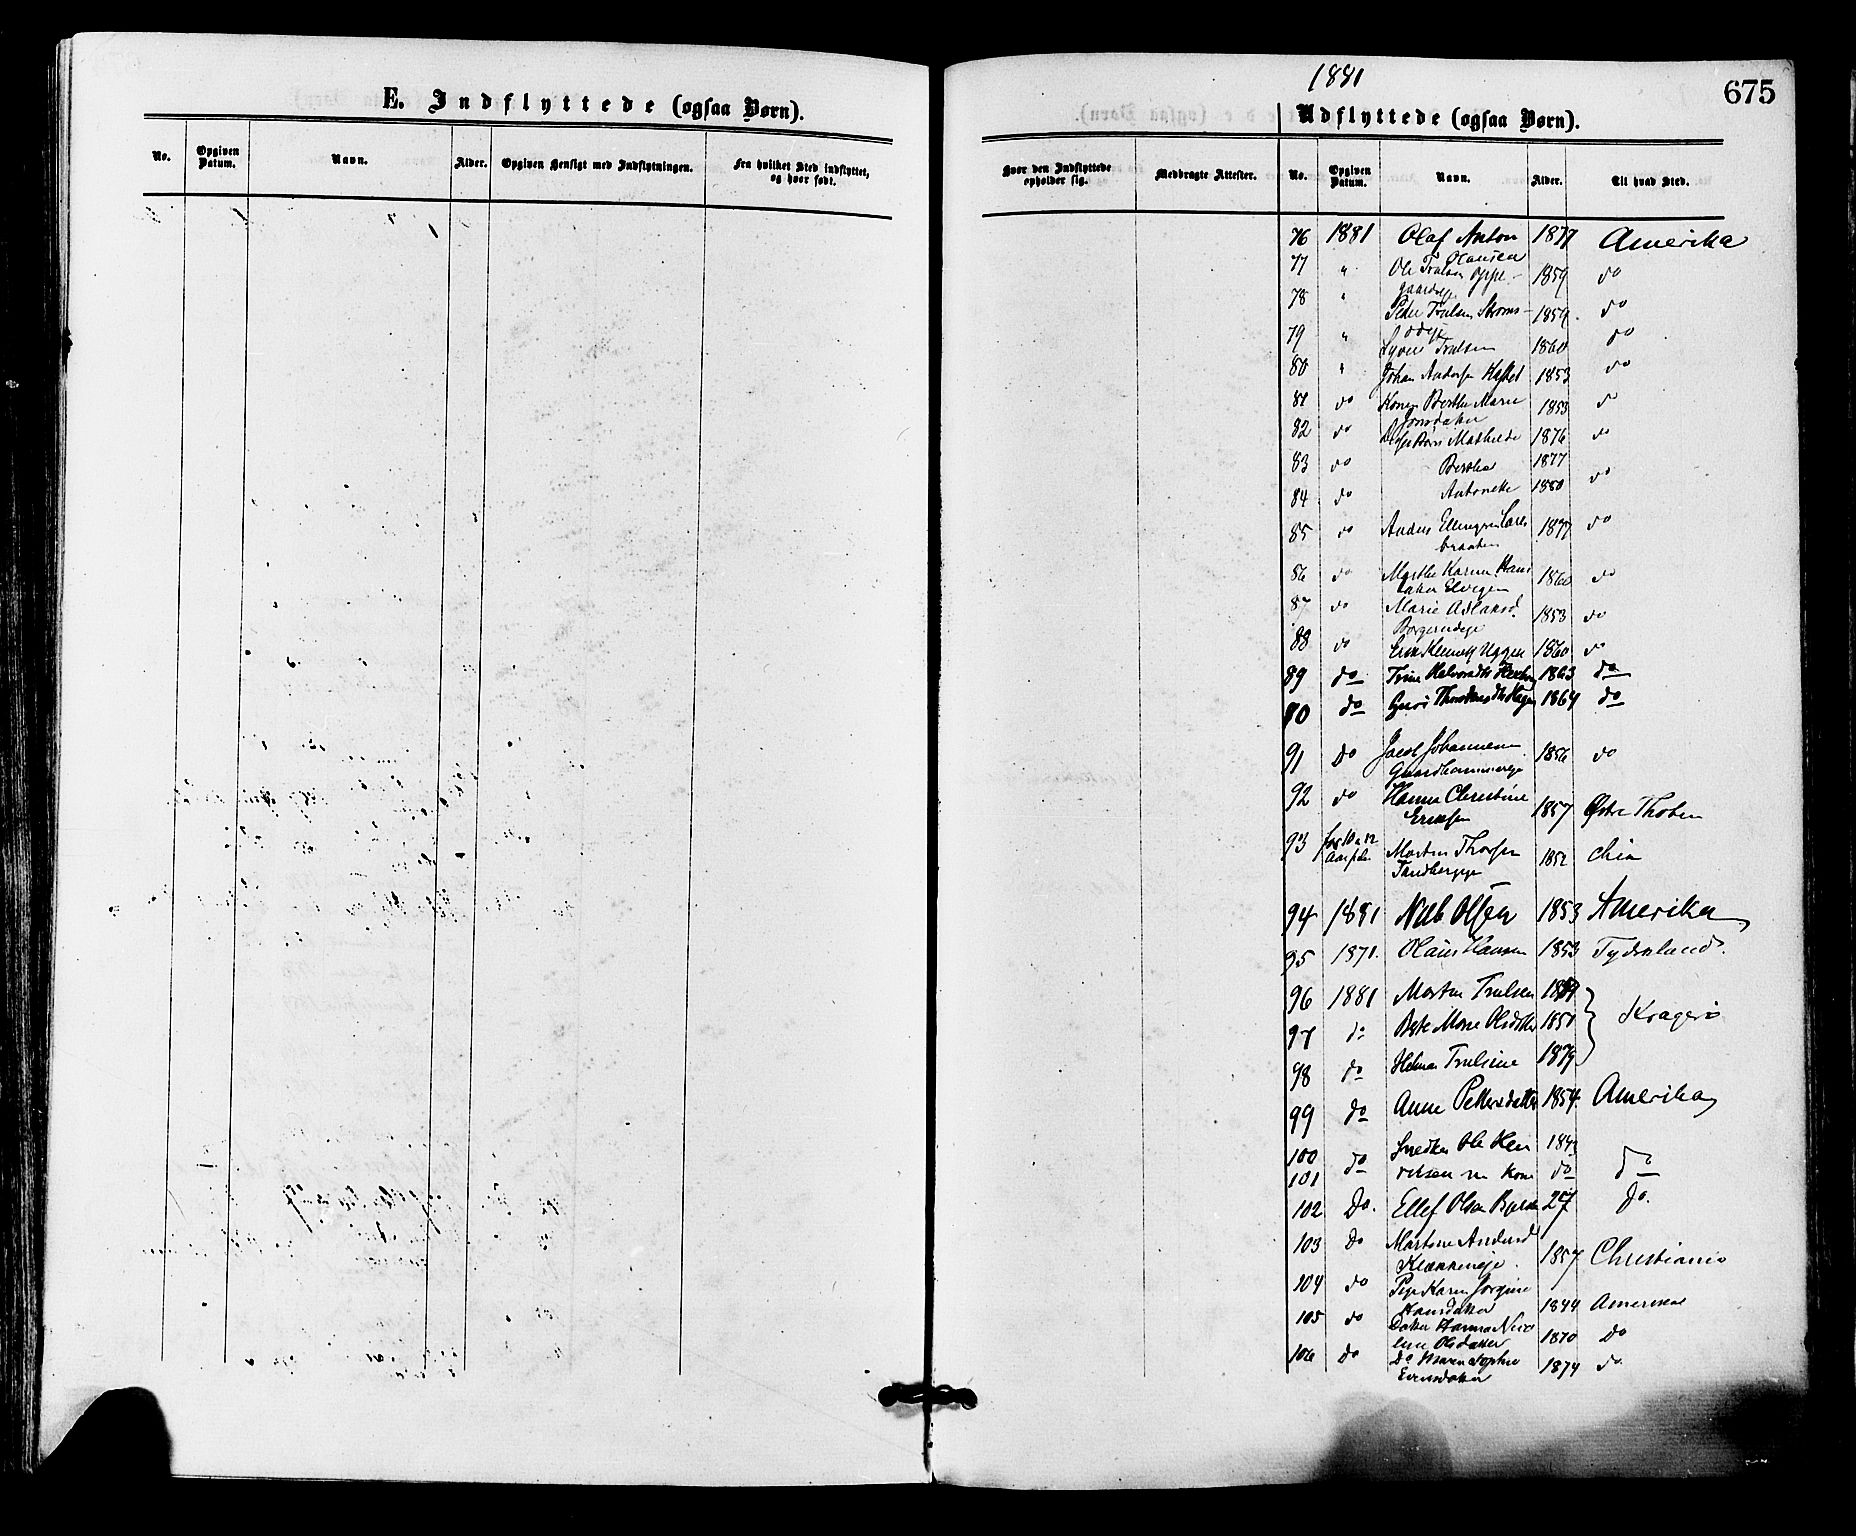 E. Indflyttede (ogsaa Børn).
No. Opgiven Datum. Navn. Alder. Opgiven Hensigt med Indflytningen. Fra hvilket Sted indflyttet, og hvor født.
1881
675
Udflyttede (ogsaa Børn).
Hvor den Indflyttede opholder sig. Medbragte Attester. No. Opgiven Datum. Navn. Alder. Til hvad Sted.
76 1881 Olaf Anton 1877 Amerika
Olausen
77 " Ole Trulsen Oppe- 1859 do
gaardeje
78 " Peder Trulsen Stroms- 1859. do
oddeje
79 " Syver Trulsen 1860 do
80 " Johan Andersen 1853 do
81 do Konen Berthe Marie 1853 do
Jonsdatter
82 do Mathilde 1876 do
83 do Berthe 1877
84 do Antonette 1880 do
85 do Anders Ellingsen 1877 do
braaten
86 do Marthe Karine Hans 1860 do
datter Elvegen
87 do Marie Aslaksd. 1853 do
88 do Uggen 1860 do
89 do Trine 1863 do
80 do Guri 1864 do
91 Do Jacob Johannesen 1856 do
Gaardhammereje
92 do Hanna Christine 1857 Østre Thoten
Eriksen
93 for 10 a 12 Aar siden Morten Thorsen 1852
Tandbergeje
94 1881 Nils Olsen 1853 Amerika
95 1871. Olaus Hansen 1853 Tydskland.
96 1881 Morten Trulsen Kragerö
97 do Berte Marie Olsdatter 1850
98 do Helma Trulsine 1879
99 do Anne Pettersdatter 1854. Amerika
100 do Snedker Ole Hen 1843 do
101 riksen og Kone do
102 Do. Ellef Olsen 27 do.
103 Do Martine Andersd 1857 Christiania
Klækkeneje.
104 do Pige Karen Jorgine
Hansdatter 1844 Amerika
105 do Datter Hanna Nico
line Olsdatter 1870 Do
106 Do Do Maren Sophie 1874 do
Evensdatter